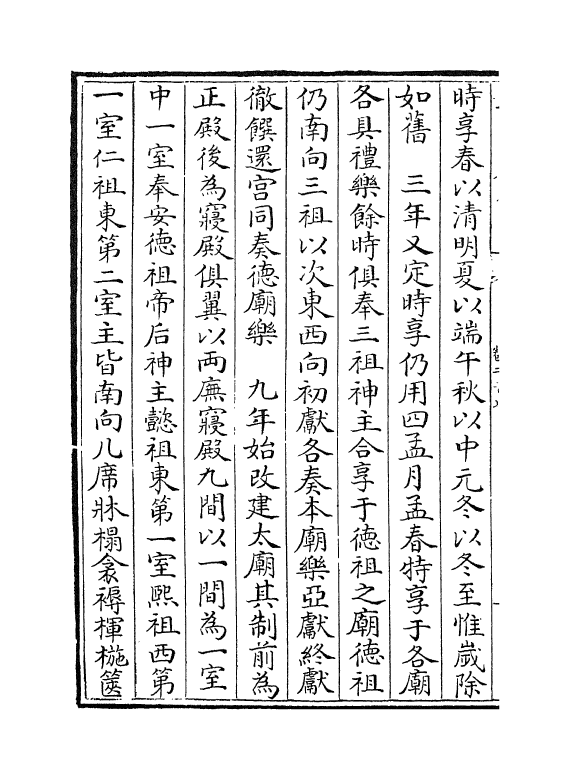 時享春以清明夏以端午秋以中元冬以冬至惟歲除
如舊　三年又定時享仍用四孟月孟春特享于各廟
各具禮樂餘時俱奉三祖神主合享于德祖之廟德祖
仍南向三祖以次東西向初獻各奏本廟樂亞獻終獻
徹饌還宫同奏德廟樂　九年始改建太廟其制前為
正殿後為寢殿俱翼以兩廡寢殿九間以一間為一室
中一室奉安德祖帝后神主懿祖東第一室熙祖西第
一室仁祖東第二室主皆南向几席牀榻衾褥楎椸篋